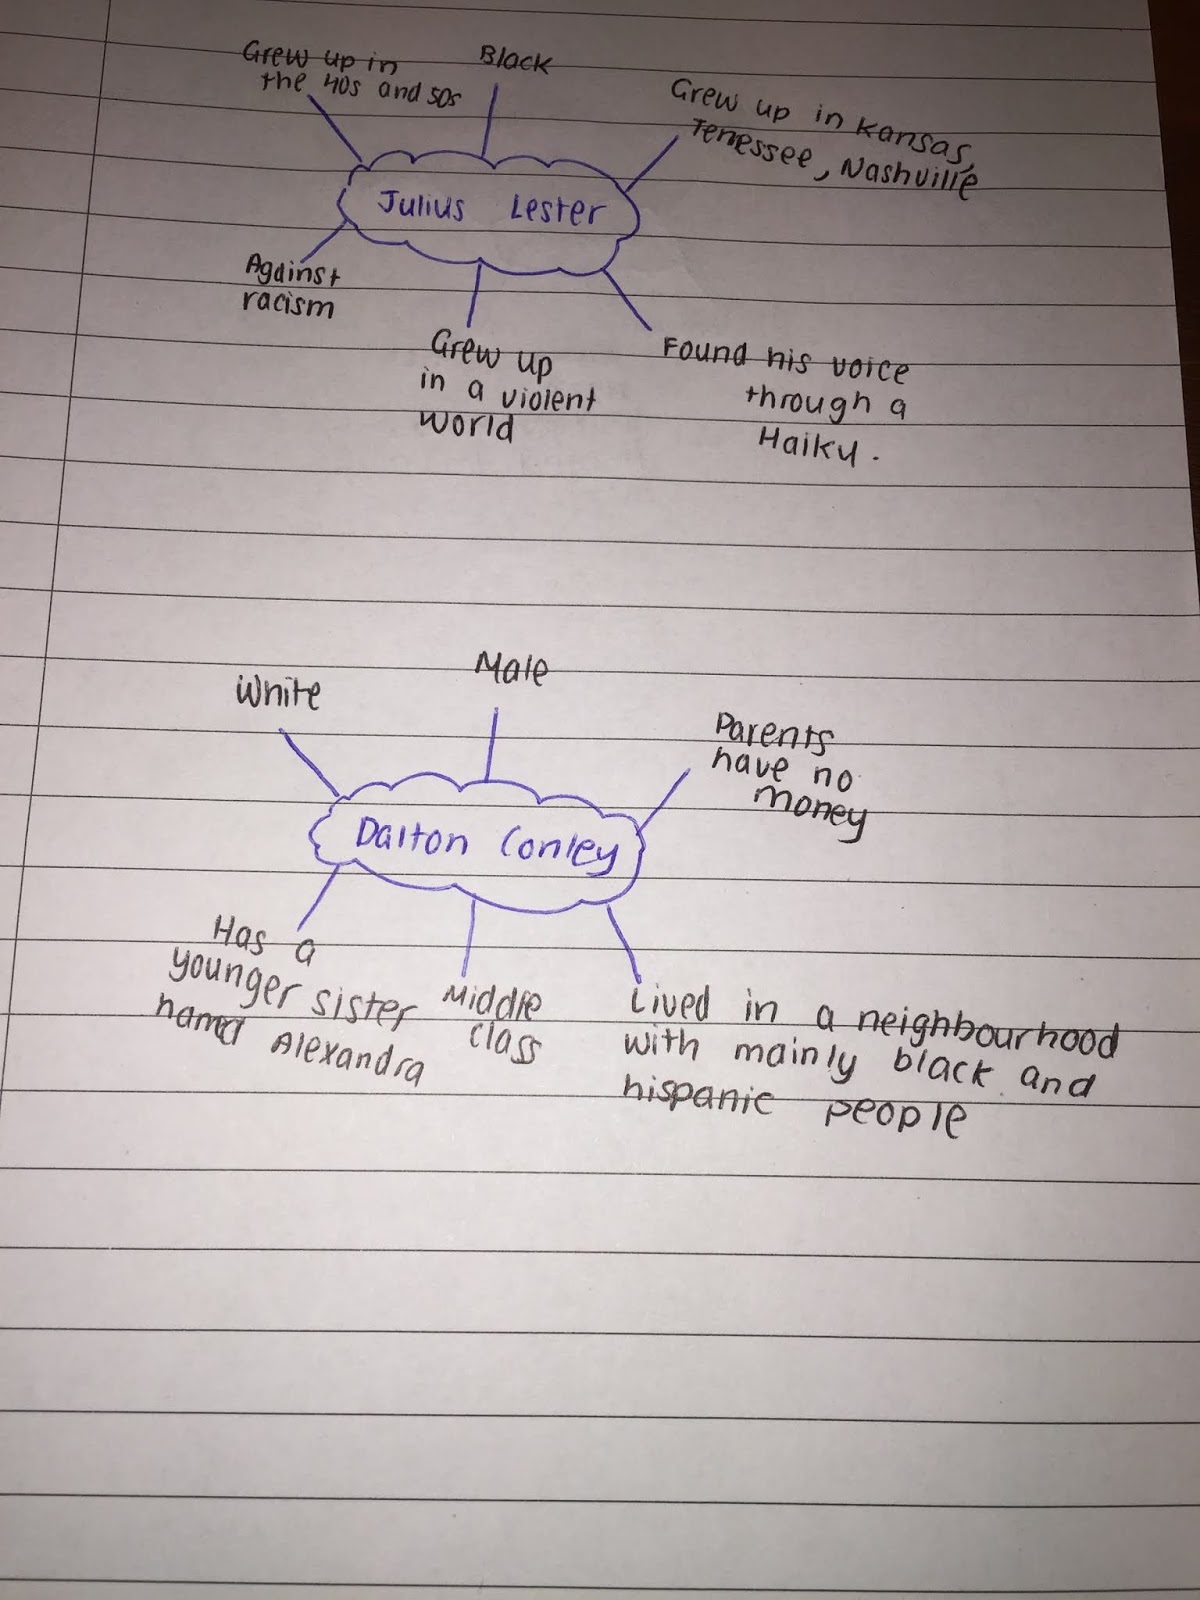 Grew up in
the 40s and 50s
Black
Grew up in Kansas,
Tenessee, Nashville
Julius Lester
Against
racism
Grew up
in a violent
world
Found his voice
through a
Haiku.
White
Male
Parents
have no
money
Dalton Conley
Has a
younger sister
named Alexandra
Middle
class
Lived in a neighbourhood
with mainly black and
hispanic people